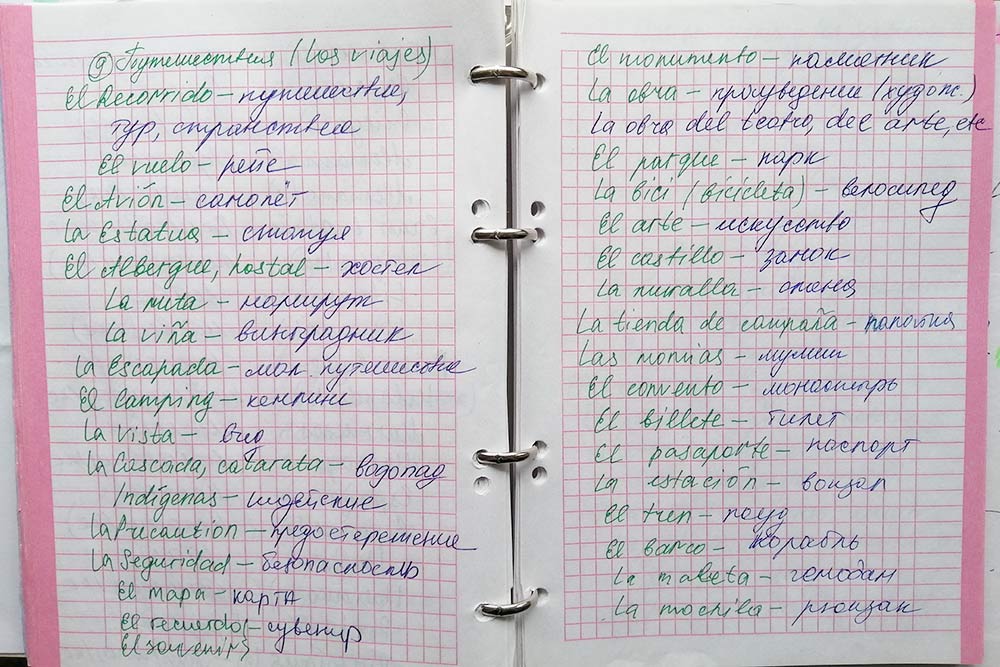 9 Путешествия (Los viajes)
El Recorrido – путешествие,
тур, странствие
El vuelo – рейс
El Avión – самолёт
La Estatua – статуя
El Albergue, hostal – хостел
La ruta – маршрут
La viña – виноградник
La Escapada – мал. путешествие
El Camping – кемпинг
La Vista – вид
La Cascada, catarata – водопад
Indígenas – индейские
La Precaución – предостережение
La Seguridad – безопасность
El mapa – карта
El recuerdo – сувенир
El souvenir
El monumento – памятник
La obra – произведение (худож.)
La obra del teatro, del arte, etc
El parque – парк
La bici (bicicleta) – велосипед
El arte – искусство
El castillo – замок
La muralla – стена
La tienda de campaña – палатка
Las momias – мумии
El convento – монастырь
El billete – билет
El pasaporte – паспорт
La estación – вокзал
El tren – поезд
El barco – корабль
La maleta – чемодан
La mochila – рюкзак